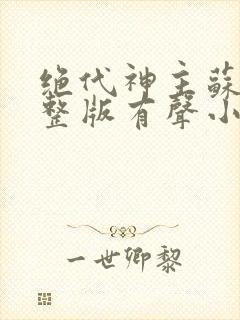 绝代神主蘇
整版有聲小
一世卿黎